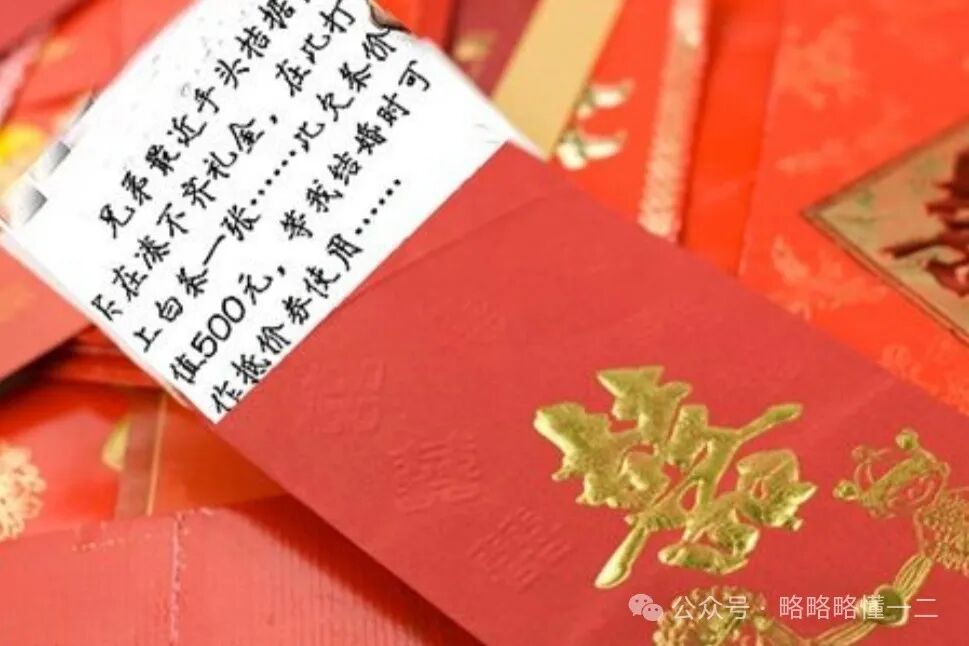 兄弟最近手头拮据
实在凑不齐礼金，在此打
上白条一张……此欠条价
值500元，等我结婚时可
作抵价券使用……
公众号·略略略懂一二